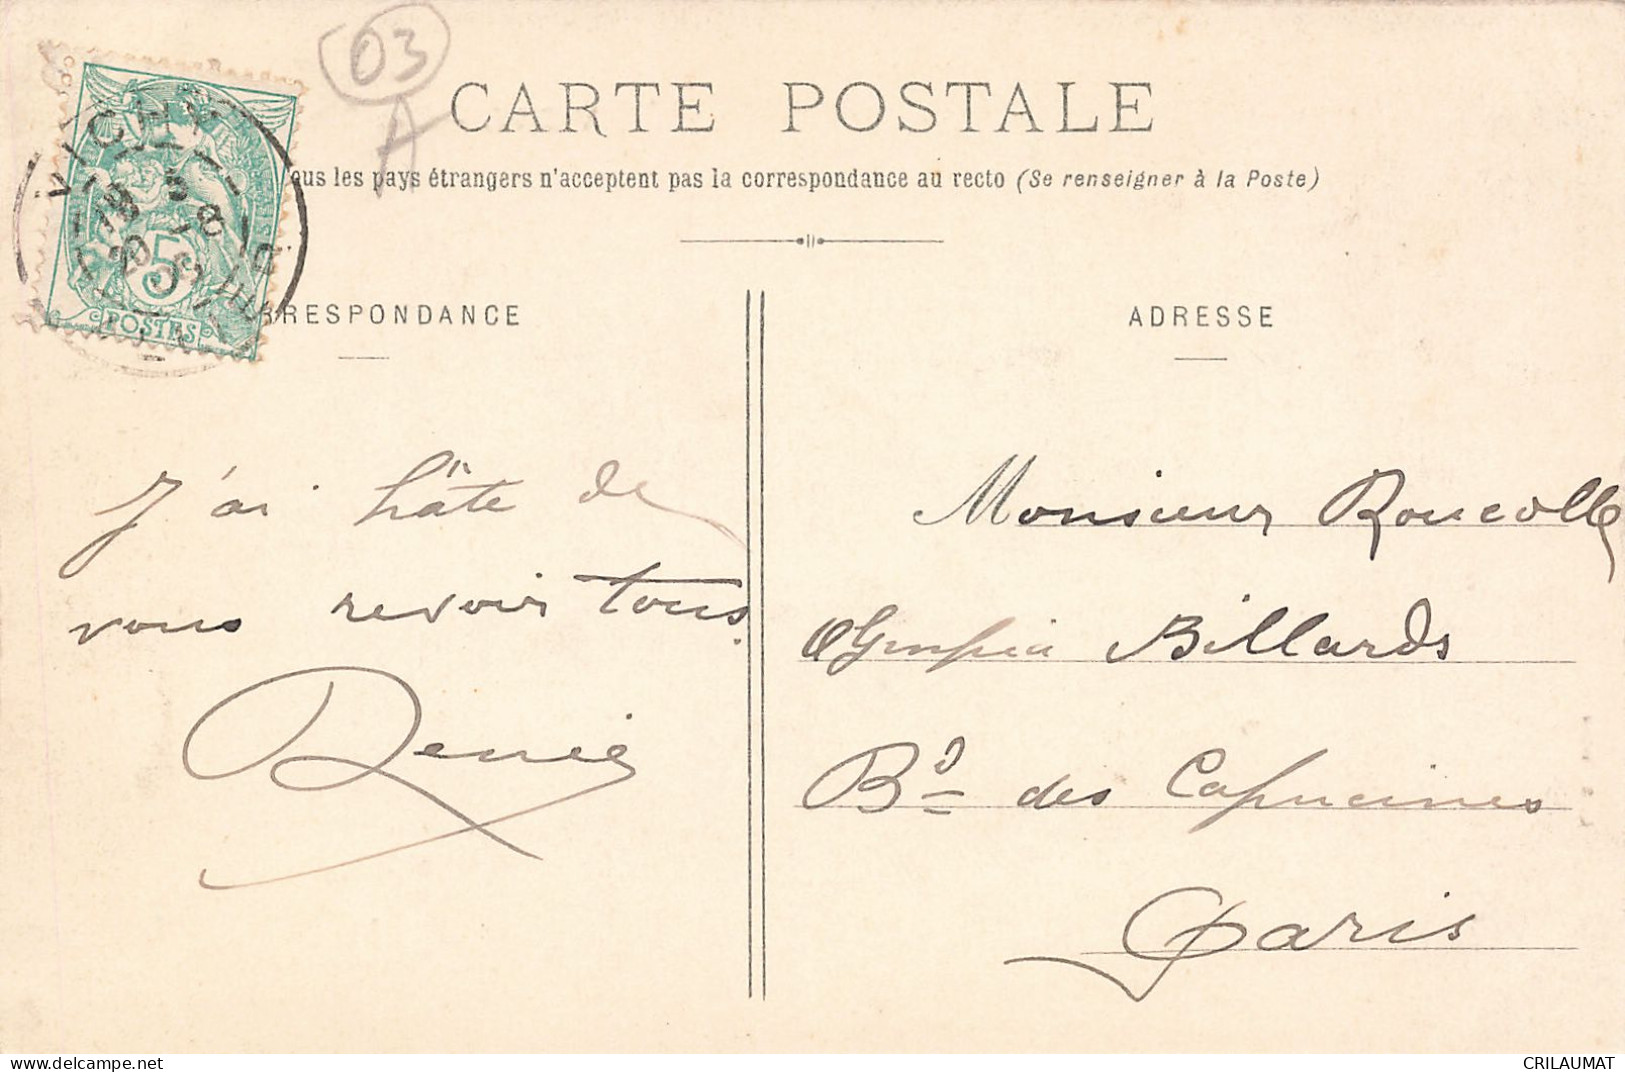 03
A
CARTE POSTALE
ous les pays étrangers n'acceptent pas la correspondance au recto (Se renseigner à la Poste)
VICHY
5
POSTES
RRESPONDANCE
ADRESSE
J'ai hâte de
vous revoir tous.
Denis
Monsieur Roucolle
Olympia Billards
Bd des Capucines
Paris
www.delcampe.net
CRILAUMAT